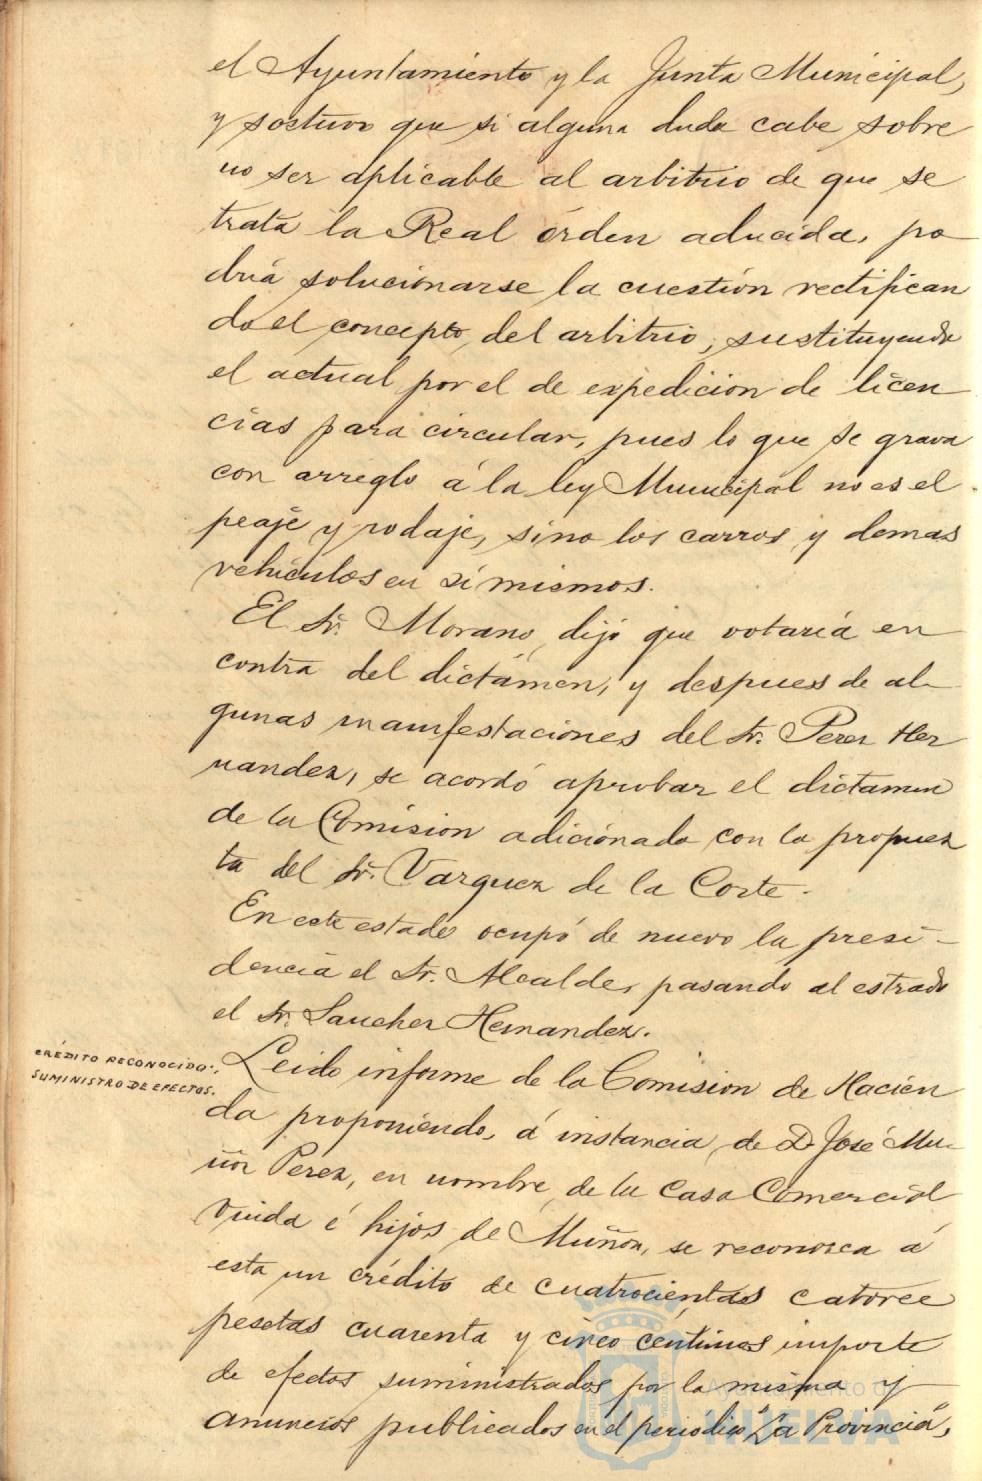 el Ayuntamiento y la Junta Municipal,
y sostuvo que si alguna duda cabe sobre
no ser aplicable al arbitrio de que se
trata la Real órden aducida, po
dria solucionarse la cuestión rectifican
do el concepto, del arbitrio, sustituyendo
el actual por el de expedicion de licen
cias para circular, pues lo que se grava
con arreglo á la ley Municipal no es el
peaje y rodaje, sino los carros y demas
vehículos en sí mismos.
El Sr. Morano dijo que votaría en
contra del dictámen, y despues de al-
gunas manifestaciones del Sr. Perez Her
nandez, se acordó aprobar el dictamen
de la Comision adicionado con la propues
ta del Sr. Vazquez de la Corte.
En este estado ocupó de nuevo la presi-
dencia el Sr. Alcalde, pasando al estrado
el Sr. Sanchez Hernandez.
CRÉDITO RECONOCIDO.
SUMINISTRO DE EFECTOS.
Leido informe de la Comision de Hacien
da proponiendo, á instancia de D. José Mu-
ñoz Perez, en nombre de la Casa Comercial
Viuda é hijos de Muñoz, se reconozca á
esta un crédito de cuatrocientas catorce
pesetas cuarenta y cinco céntimos importe
de efectos suministrados por la misma y
anuncios publicados en el periódico "La Provincia",
Ayuntamiento de
HUELVA